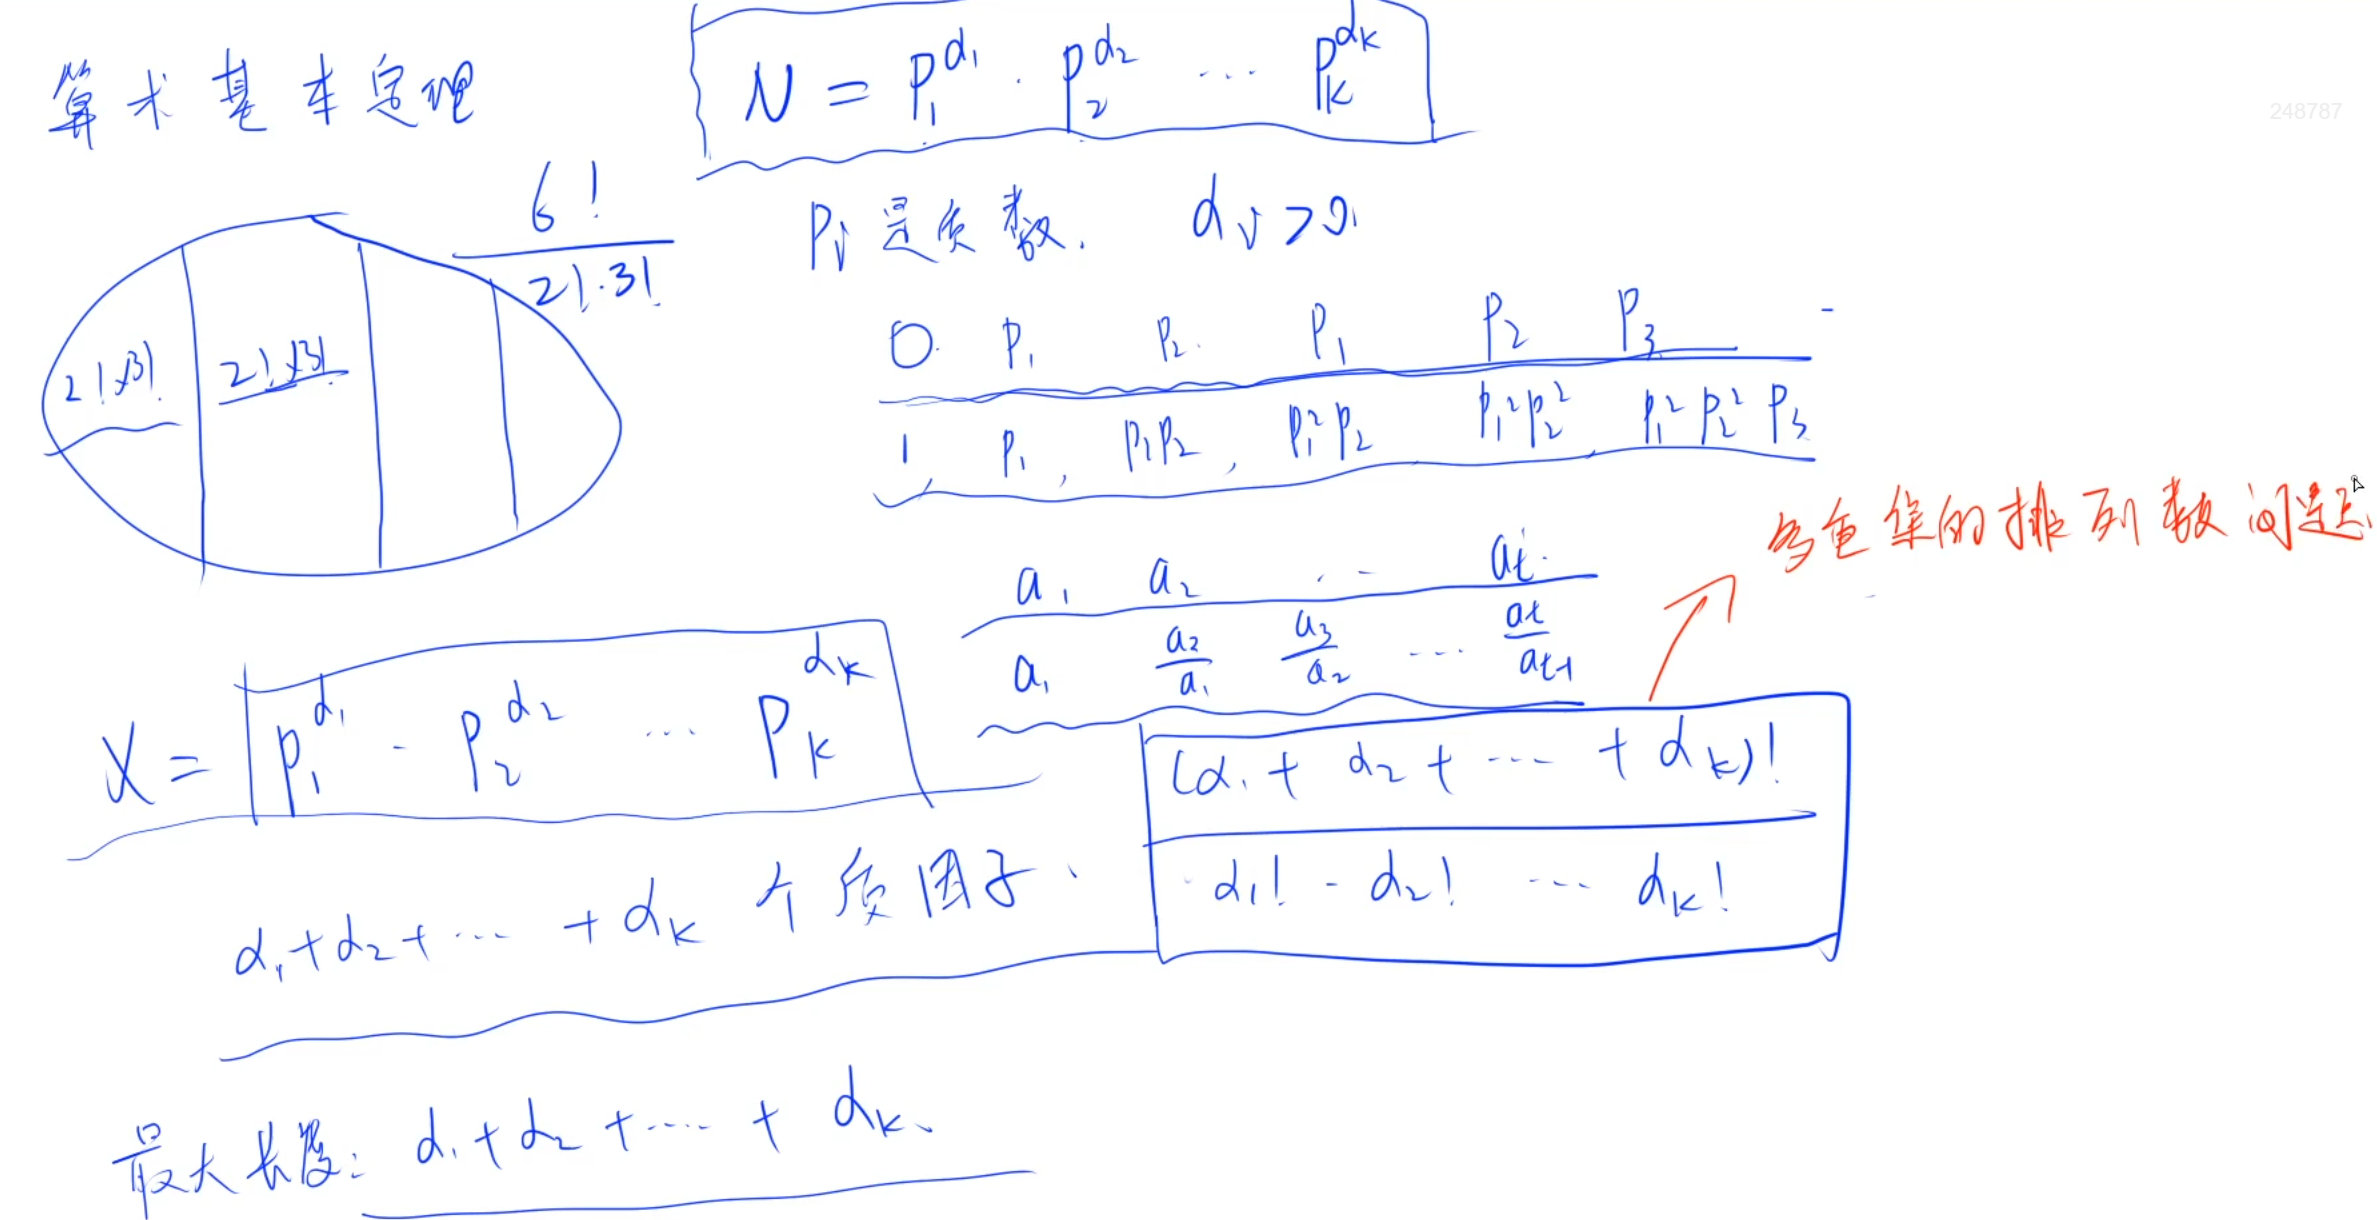 算术基本定理
N = P₁^α₁ · P₂^α₂ ... P_k^α_k
248787
Pᵢ是质数. αᵢ>0.
6!
2!·3!
2!×3! 2!×3!
0. P₁ P₂. P₁ P₂ P₃
1, P₁, P₁P₂, P₁²P₂ P₁²P₂² P₁²P₂²P₃
多重集的排列数问题.
a₁ a₂ ... a_t.
a₁ a₂/a₁ a₃/a₂ ... a_t/a_t-1
X = P₁^α₁ · P₂^α₂ ... P_k^α_k
(α₁ + α₂ + ... + α_k)!
α₁! · α₂! ... α_k!
α₁+α₂+ ... +α_k 个质因子、
最大长度: α₁+α₂+ .... + α_k、